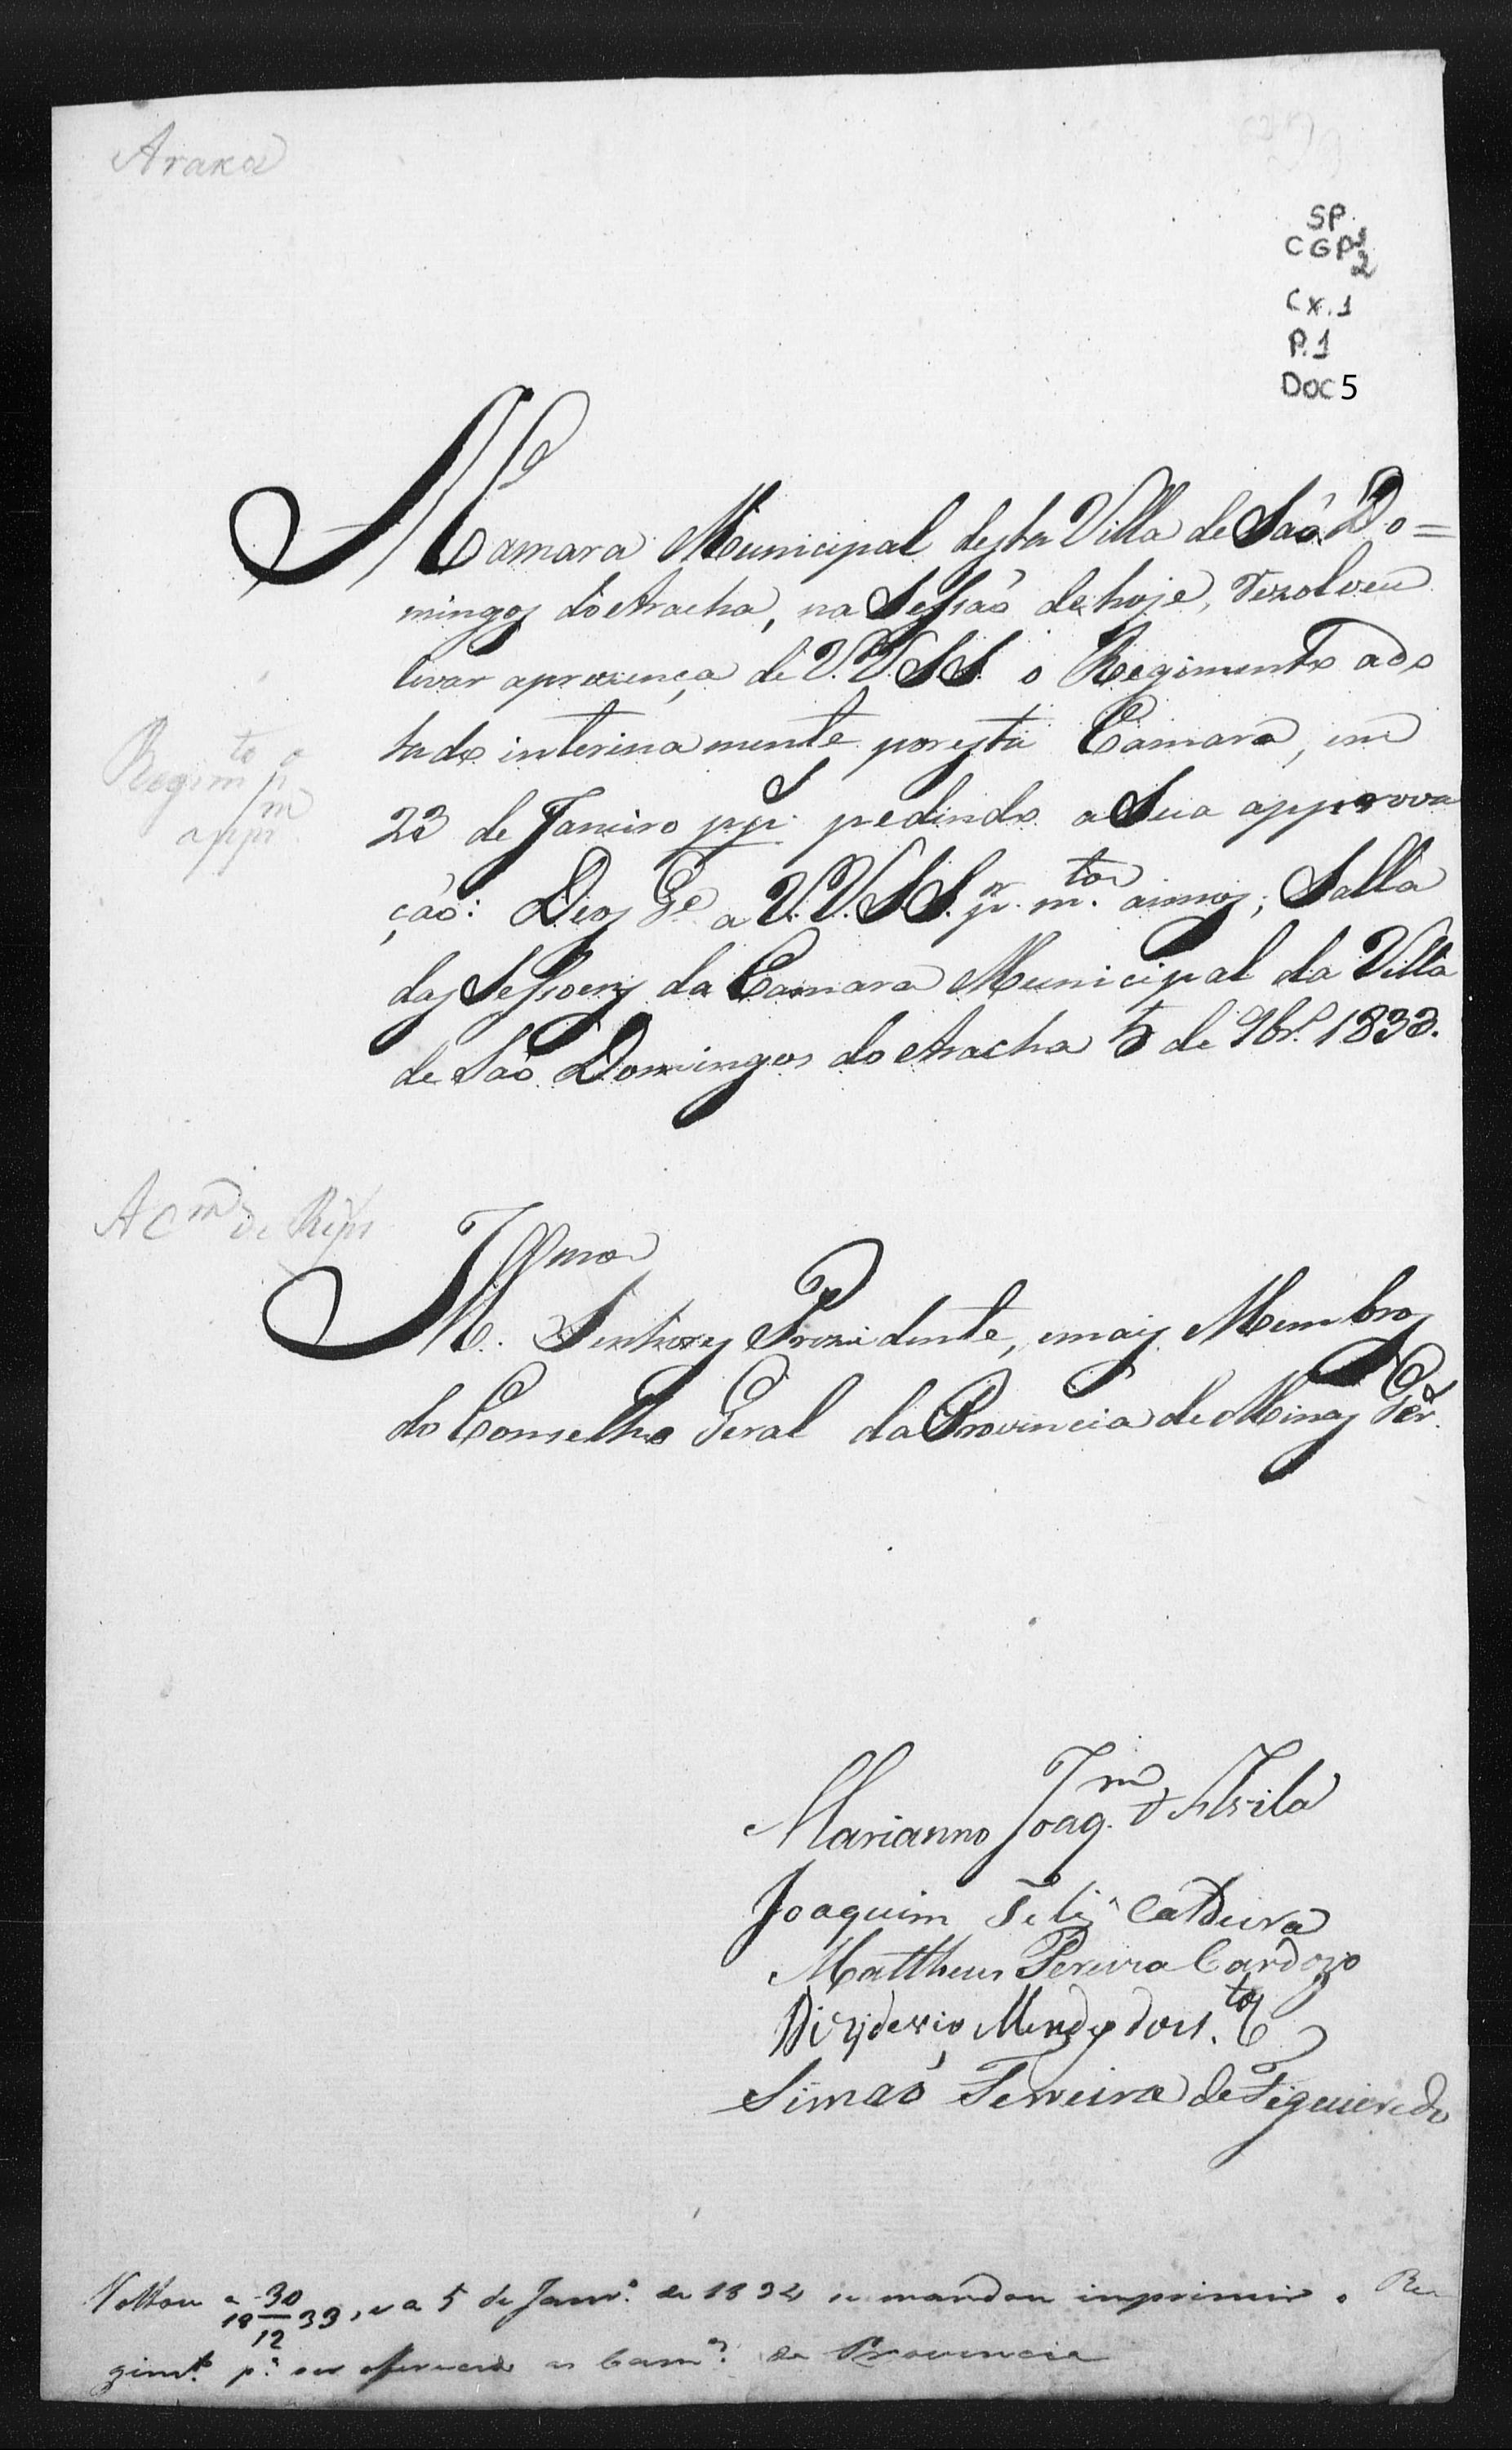 Araxa
SP
CGP 1/2
Cx.1
P.1
DOC 5
A Camara Municipal desta Villa de Saõ Do=
mingos do Aracha, na Sessaõ de hoje, rezolveu
levar aprezença de V.V.S.S. o Regimento ado
tado interinamente por esta Camara, em
23 de Janeiro p.p. pedindo a Sua approva
çaõ: Deos G.e a V.V.S.S. p.r m.tos annos; Salla
das Sessoens da Camara Municipal da Villa
de Saõ Domingos do Aracha 5 de 9br.o 1833.
Regim.to p.a
app.m
A C.m de Reps
Illmos
M. Senhores Prezidente, emais Membros
do Conselho Geral da Provincia de Minas Ger.s
Marianno Joaq.m d'Avila
Joaquim Feliz Caldeira
Mattheus Pereira Cardozo
Dizyderio Mendes dos S.tos
Simaõ Ferreira de Figueiredo
Voltou a 30/12 1833, e a 5 de Janr.o de 1834 se mandou imprimir o Re
gim.to p.a ser offerecido as Cam.as da Provincia